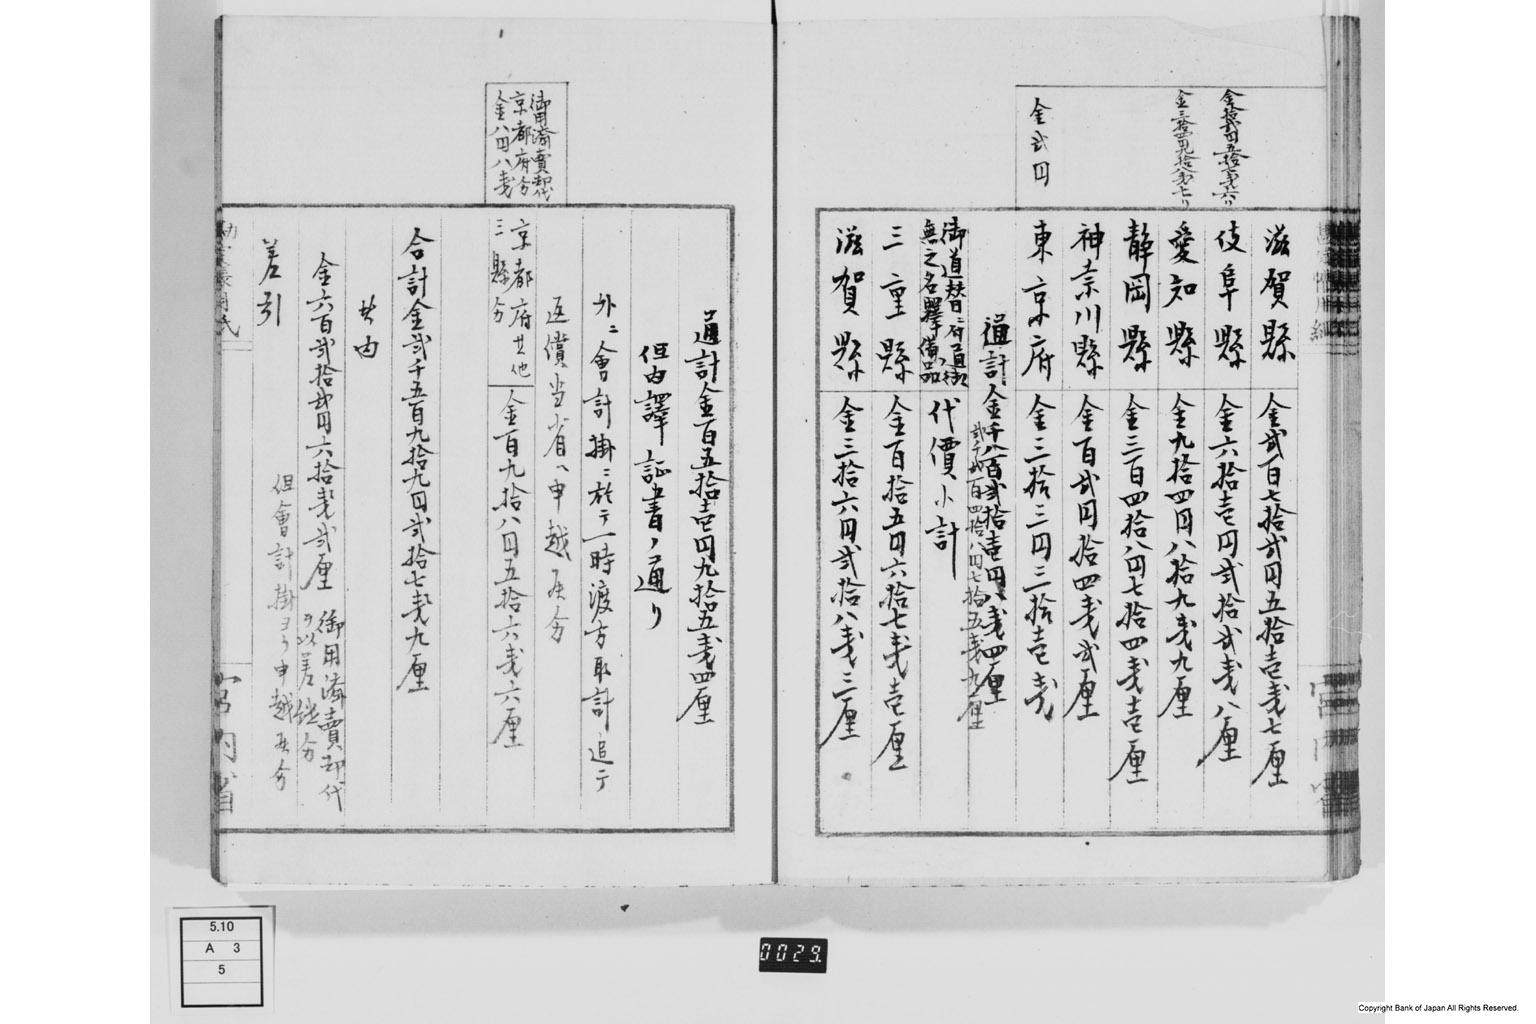 金拾弐円五拾壱銭六リ
金三拾四円九拾八銭七リ
金弐円
滋賀縣 金弐百七拾弐円五拾壱銭七厘
岐阜縣 金六拾壱円弐拾弐銭八厘
愛知縣 金九拾四円八拾九銭九厘
静岡縣 金三百四拾八円七拾四銭壱厘
神奈川縣 金百弐円拾四銭弐厘
東京府 金三拾三円三拾壱銭
通計金千八百弐拾壱円八銭四厘
代價小計
三重縣 金百拾五円六拾七銭壱厘
滋賀縣 金三拾六円弐拾八銭三厘
通計金百五拾壱円九拾五銭四厘
但内譯証書ノ通リ
外ニ會計掛ニ於テ一時渡方取計追テ
返償当省ヘ申越候分
御用済賣却代
京都府分
金八円八銭
京都府其他
三縣分
金百九拾八円五拾六銭六厘
合計金弐千五百九拾九円弐拾七銭九厘
其内
金六百弐拾弐円六拾銭弐厘
御用済賣却代
ヲ以差継分
差引
但會計掛ヨリ申越候分
宮内省
5.10
A 3
5
0029.
Copyright Bank of Japan All Rights Reserved.